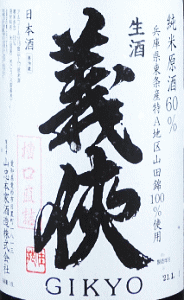 純米原酒60%
兵庫県東条産特A地区山田錦
100%使用
生酒
日本酒
義侠
槽口直詰
山忠本家酒造株式会社
GIKYO